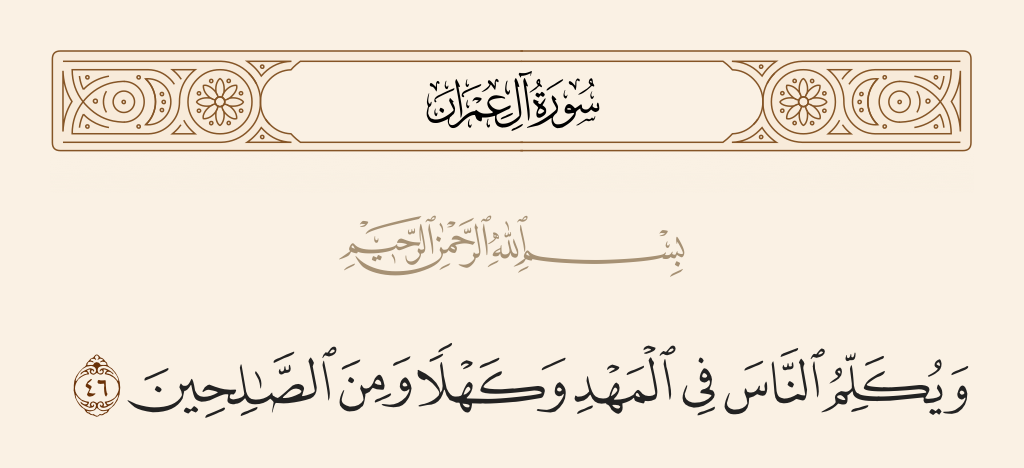 سُورَةُ آلِ عِمْرَان
بِسْمِ ٱللَّهِ ٱلرَّحْمَٰنِ ٱلرَّحِيمِ
وَيُكَلِّمُ ٱلنَّاسَ فِى ٱلْمَهْدِ وَكَهْلًا وَمِنَ ٱلصَّٰلِحِينَ ٤٦